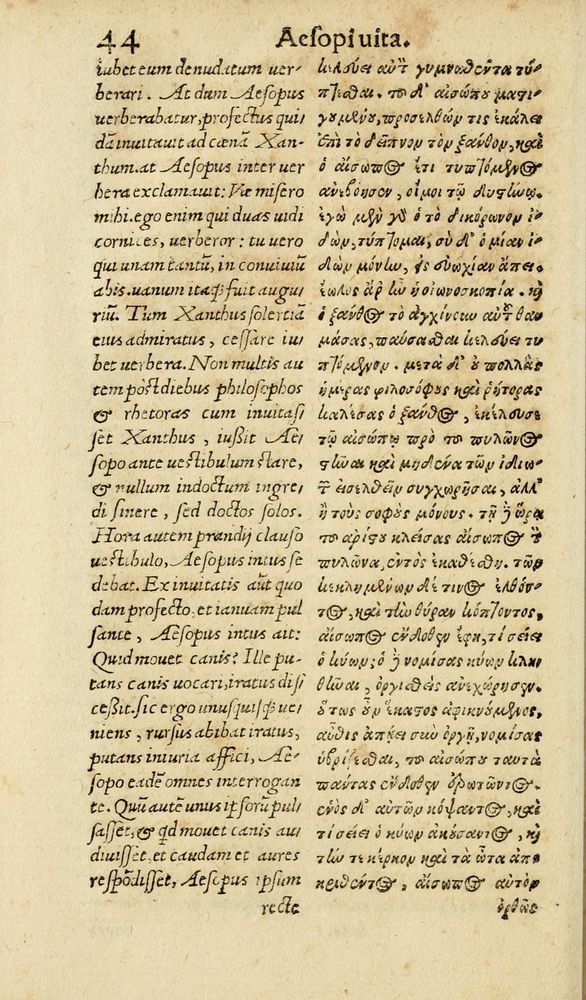 44 Aesopi uita.
iubet eum denudatum uer-
berari. At dum Aesopus
uerberabatur, profectus qui
dā inuitauit ad cœnā Xan-
thum. at Aesopus inter uer
bera exclamauit: Væ misero
mihi. ego enim qui duas uidi
cornices, uerberor: tu uero
qui unam tantū, in conuiuiū
abis. uanum itaq; fuit augu
riū. Tum Xanthus solertiā
eius admiratus, cessare iu-
bet uerbera. Non multis au
tem póst diebus philosophos
& rhetoras cum inuitasi
set Xanthus, iußit Ae-
sopo ante uestibulum stare,
& nullum indoctum ingre
di sinere, sed doctos solos.
Hora autem prandij clauso
uestibulo, Aesopus intus se
debat. Ex inuitatis aūt quo
dam profecto, et ianuam pul
sante, Aesopus intus ait:
Quid mouet canis? Ille pu-
tans canis uocari, iratus disi
ceßit. sic ergo unusquisq; ue
niens, rursus abibat iratus,
putans iniuria affici, Ae-
sopo eadē omnes interrogan
te. Quū autē unus ipsorū pul
sasset, & qd mouet canis au
diuisset, et caudam et aures
respōdisset, Aesopus ipsum
recte
κελεύει αὖτ γυμνωθέντα τύ-
πτεσθαι. τοῦ δ' αἰσώπου μαστι-
γουμένου, προσελθών τις ἐκάλει
ἐπὶ τὸ δεῖπνον τὸν ξάνθον, καὶ
ὁ αἴσωπος ἔτι τυπτόμενος
ἀνεβόησεν, οἴμοι τῷ δυστήνῳ.
ἐγὼ μὲν γὸ ὁ τὸ δικόρωνον ἰ-
δὼν, τύπτομαι, σὺ δ' ὁ μίαν ἰ-
δὼν μόνην, ἐς εὐωχίαν ἄπει.
ἕωλος ἄρ ἦν ἡ οἰωνοσκοπία. καὶ
ὁ ξάνθος τὸ ἀγχίνουν αὐτοῦ θαυ
μάσας, παύσασθαι κελεύει τυ
πτόμενον. μετὰ δ' οὐ πολλὰς
ἡμέρας φιλοσόφους καὶ ῥήτορας
καλέσας ὁ ξάνθος, ἐκέλευσε
τῷ αἰσώπῳ πρὸ τοῦ πυλῶνος
στῆναι καὶ μηδένα τῶν ἰδιω-
τῶν εἰσελθεῖν συγχωρῆσαι, ἀλλ'
ἢ τοὺς σοφοὺς μόνους. τῇ δ' ὥρᾳ
τοῦ ἀρίστου κλείσας αἴσωπος τὸν
πυλῶνα, ἐντὸς ἐκάθητο. τῶν
κεκλημένων δέ τινος ἐλθόν-
τος, καὶ τὴν θύραν κόπτοντος,
αἴσωπος ἔνδοθεν ἔφη, τί σείει
ὁ κύων; ὁ δ' νομίσας κύων κεκλη
θῆναι, ὀργισθεὶς ἀνεχώρησεν.
οὕτως οὖν ἕκαστος ἀφικνούμενος,
αὖθις ἀπῄει σὺν ὀργῇ, νομίσας
ὑβρίζεσθαι, τοῦ αἰσώπου ταυτὰ
πάντας ἔνδοθεν ἐρωτῶντος.
ἑνὸς δ' αὐτῶν κόψαντος, καὶ
τί σείει ὁ κύων ἀκούσαντος, καὶ
τήν τε κέρκον καὶ τὰ ὦτα ἀπο
κριθέντος, αἴσωπος αὐτὸν
ὀρθῶς